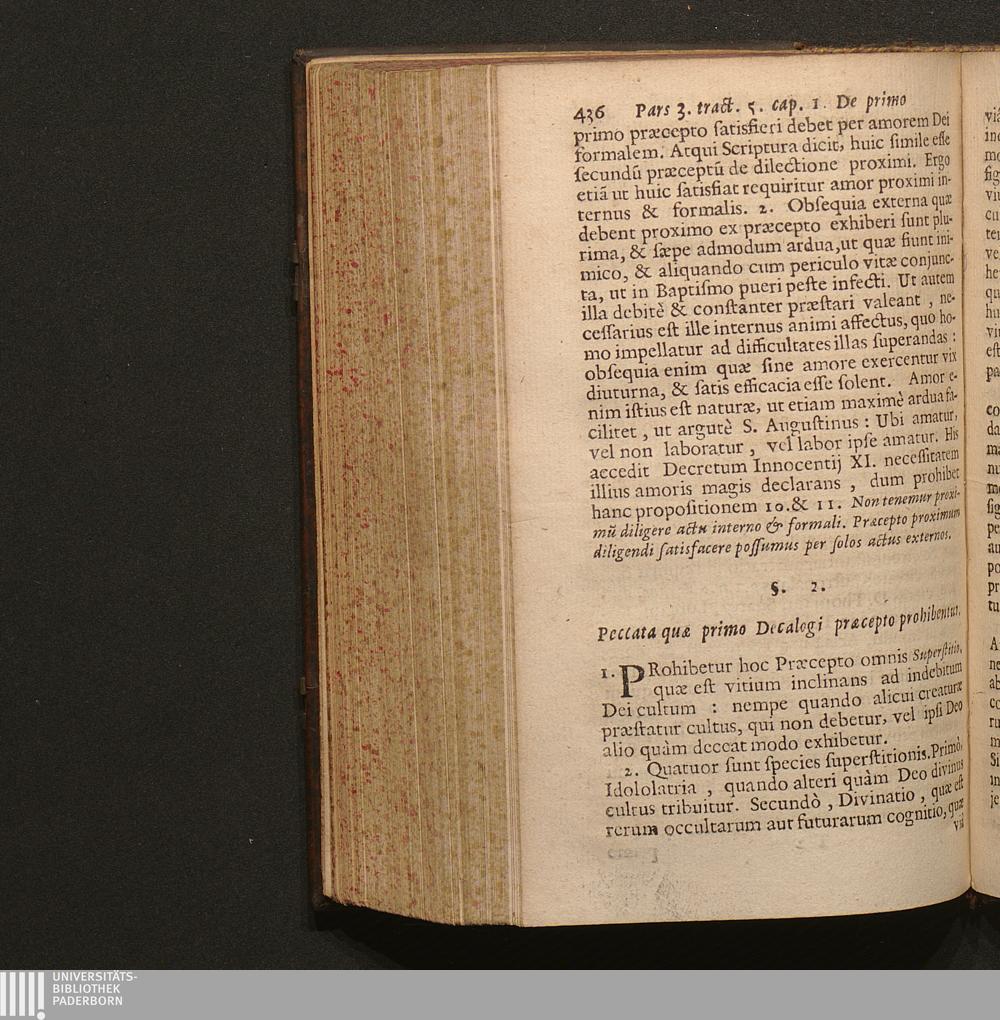 436 Pars 3. tract. 5. cap. 1. De primo
primo præcepto ſatisfieri debet per amorem Dei
formalem. Atqui Scriptura dicit, huic ſimile eſſe
ſecundũ præceptũ de dilectione proximi. Ergo
etiã ut huic ſatisfiat requiritur amor proximi in-
ternus & formalis. 2. Obſequia externa quæ
debent proximo ex præcepto exhiberi ſunt plu-
rima, & ſæpe admodum ardua, ut quæ fiunt ini-
mico, & aliquando cum periculo vitæ conjunc-
ta, ut in Baptiſmo pueri peſte infecti. Ut autem
illa debitè & conſtanter præſtari valeant , ne-
ceſſarius eſt ille internus animi affectus, quo ho-
mo impellatur ad difficultates illas ſuperandas :
obſequia enim quæ ſine amore exercentur vix
diuturna, & ſatis efficacia eſſe ſolent. Amor e-
nim iſtius eſt naturæ, ut etiam maximè ardua fa-
cilitet , ut argutè S. Auguſtinus : Ubi amatur,
vel non laboratur , vel labor ipſe amatur. His
accedit Decretum Innocentij XI. neceſſitatem
illius amoris magis declarans , dum prohibet
hanc propoſitionem 10. & 11. Non tenemur proxi-
mũ diligere actu interno & formali. Præcepto proximum
diligendi ſatisfacere poſſumus per ſolos actus externos.
§. 2.
Peccata quæ primo Decalogi præcepto prohibentur.
1. PRohibetur hoc Præcepto omnis Superſtitio,
quæ eſt vitium inclinans ad indebitum
Dei cultum : nempe quando alicui creaturæ
præſtatur cultus, qui non debetur, vel ipſi Deo
alio quàm deceat modo exhibetur.
2. Quatuor ſunt ſpecies ſuperſtitionis. Primò,
Idololatria , quando alteri quàm Deo divinus
cultus tribuitur. Secundò , Divinatio , quæ eſt
rerum occultarum aut futurarum cognitio, quæ
UNIVERSITÄTS-
BIBLIOTHEK
PADERBORN